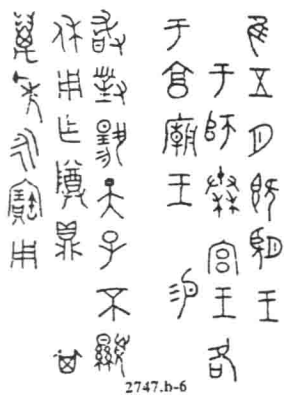 隹五月既望王
于師秦宮王各
于享廟王
敢對揚天子不顯
休用乍尊鼎其
萬年永寶用
2747.b-6